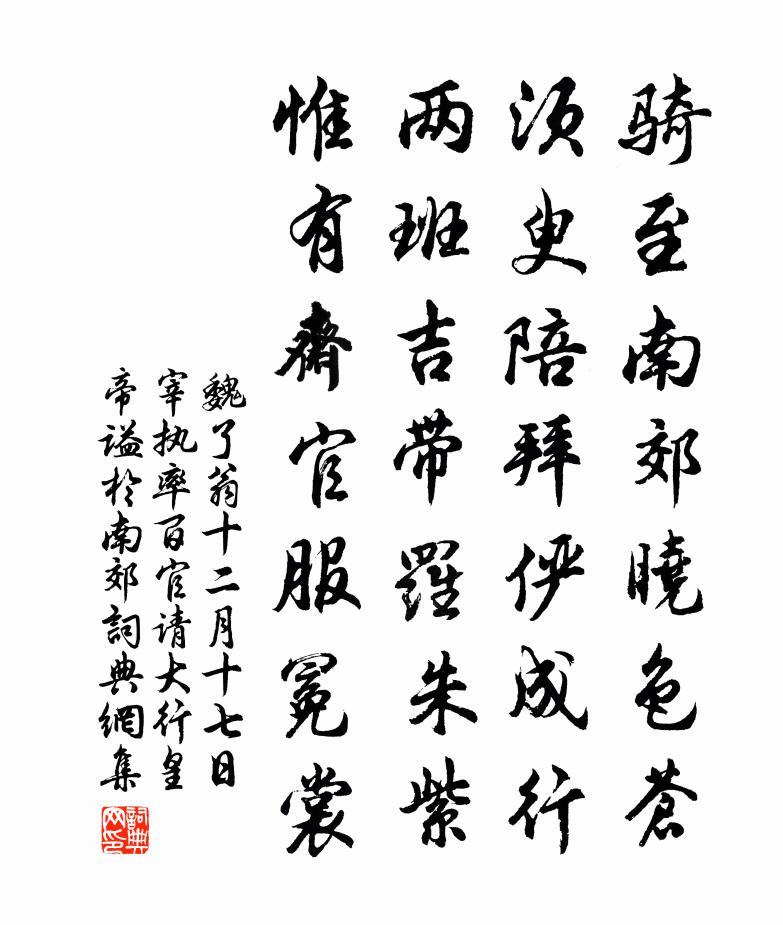 骑至南郊曉色苍
须臾陪拜俨成行
两班吉带羅朱紫
惟有齋官服冕裳
魏了翁十二月十七日
宰执率百官请大行皇
帝谥於南郊詞典網集
詞典网印